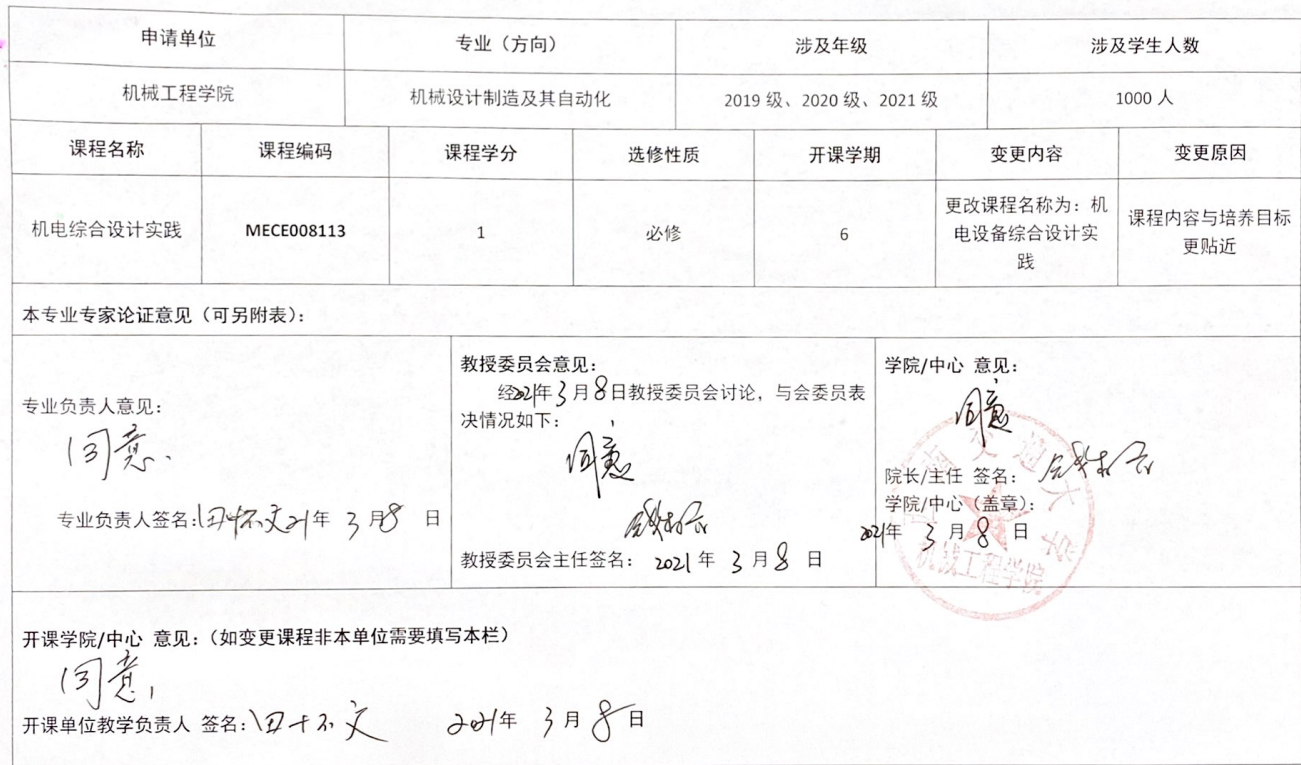 申请单位 专业（方向） 涉及年级 涉及学生人数
机械工程学院 机械设计制造及其自动化 2019 级、2020 级、2021 级 1000 人
课程名称 课程编码 课程学分 选修性质 开课学期 变更内容 变更原因
机电综合设计实践 MECE008113 1 必修 6 更改课程名称为：机 课程内容与培养目标
电设备综合设计实 更贴近
践
本专业专家论证意见（可另附表）：
专业负责人意见：
同意.
专业负责人签名：田怀文 21年 3月8 日
教授委员会意见：
经2021年3月8日教授委员会讨论，与会委员表
决情况如下：
同意
教授委员会主任签名： 2021 年 3 月 8 日
学院/中心 意见：
同意
院长/主任 签名：
学院/中心（盖章）：
2021年 3 月 8 日
机械工程学院
开课学院/中心 意见：（如变更课程非本单位需要填写本栏）
同意,
开课单位教学负责人 签名：田怀文 2021年 3 月 8 日